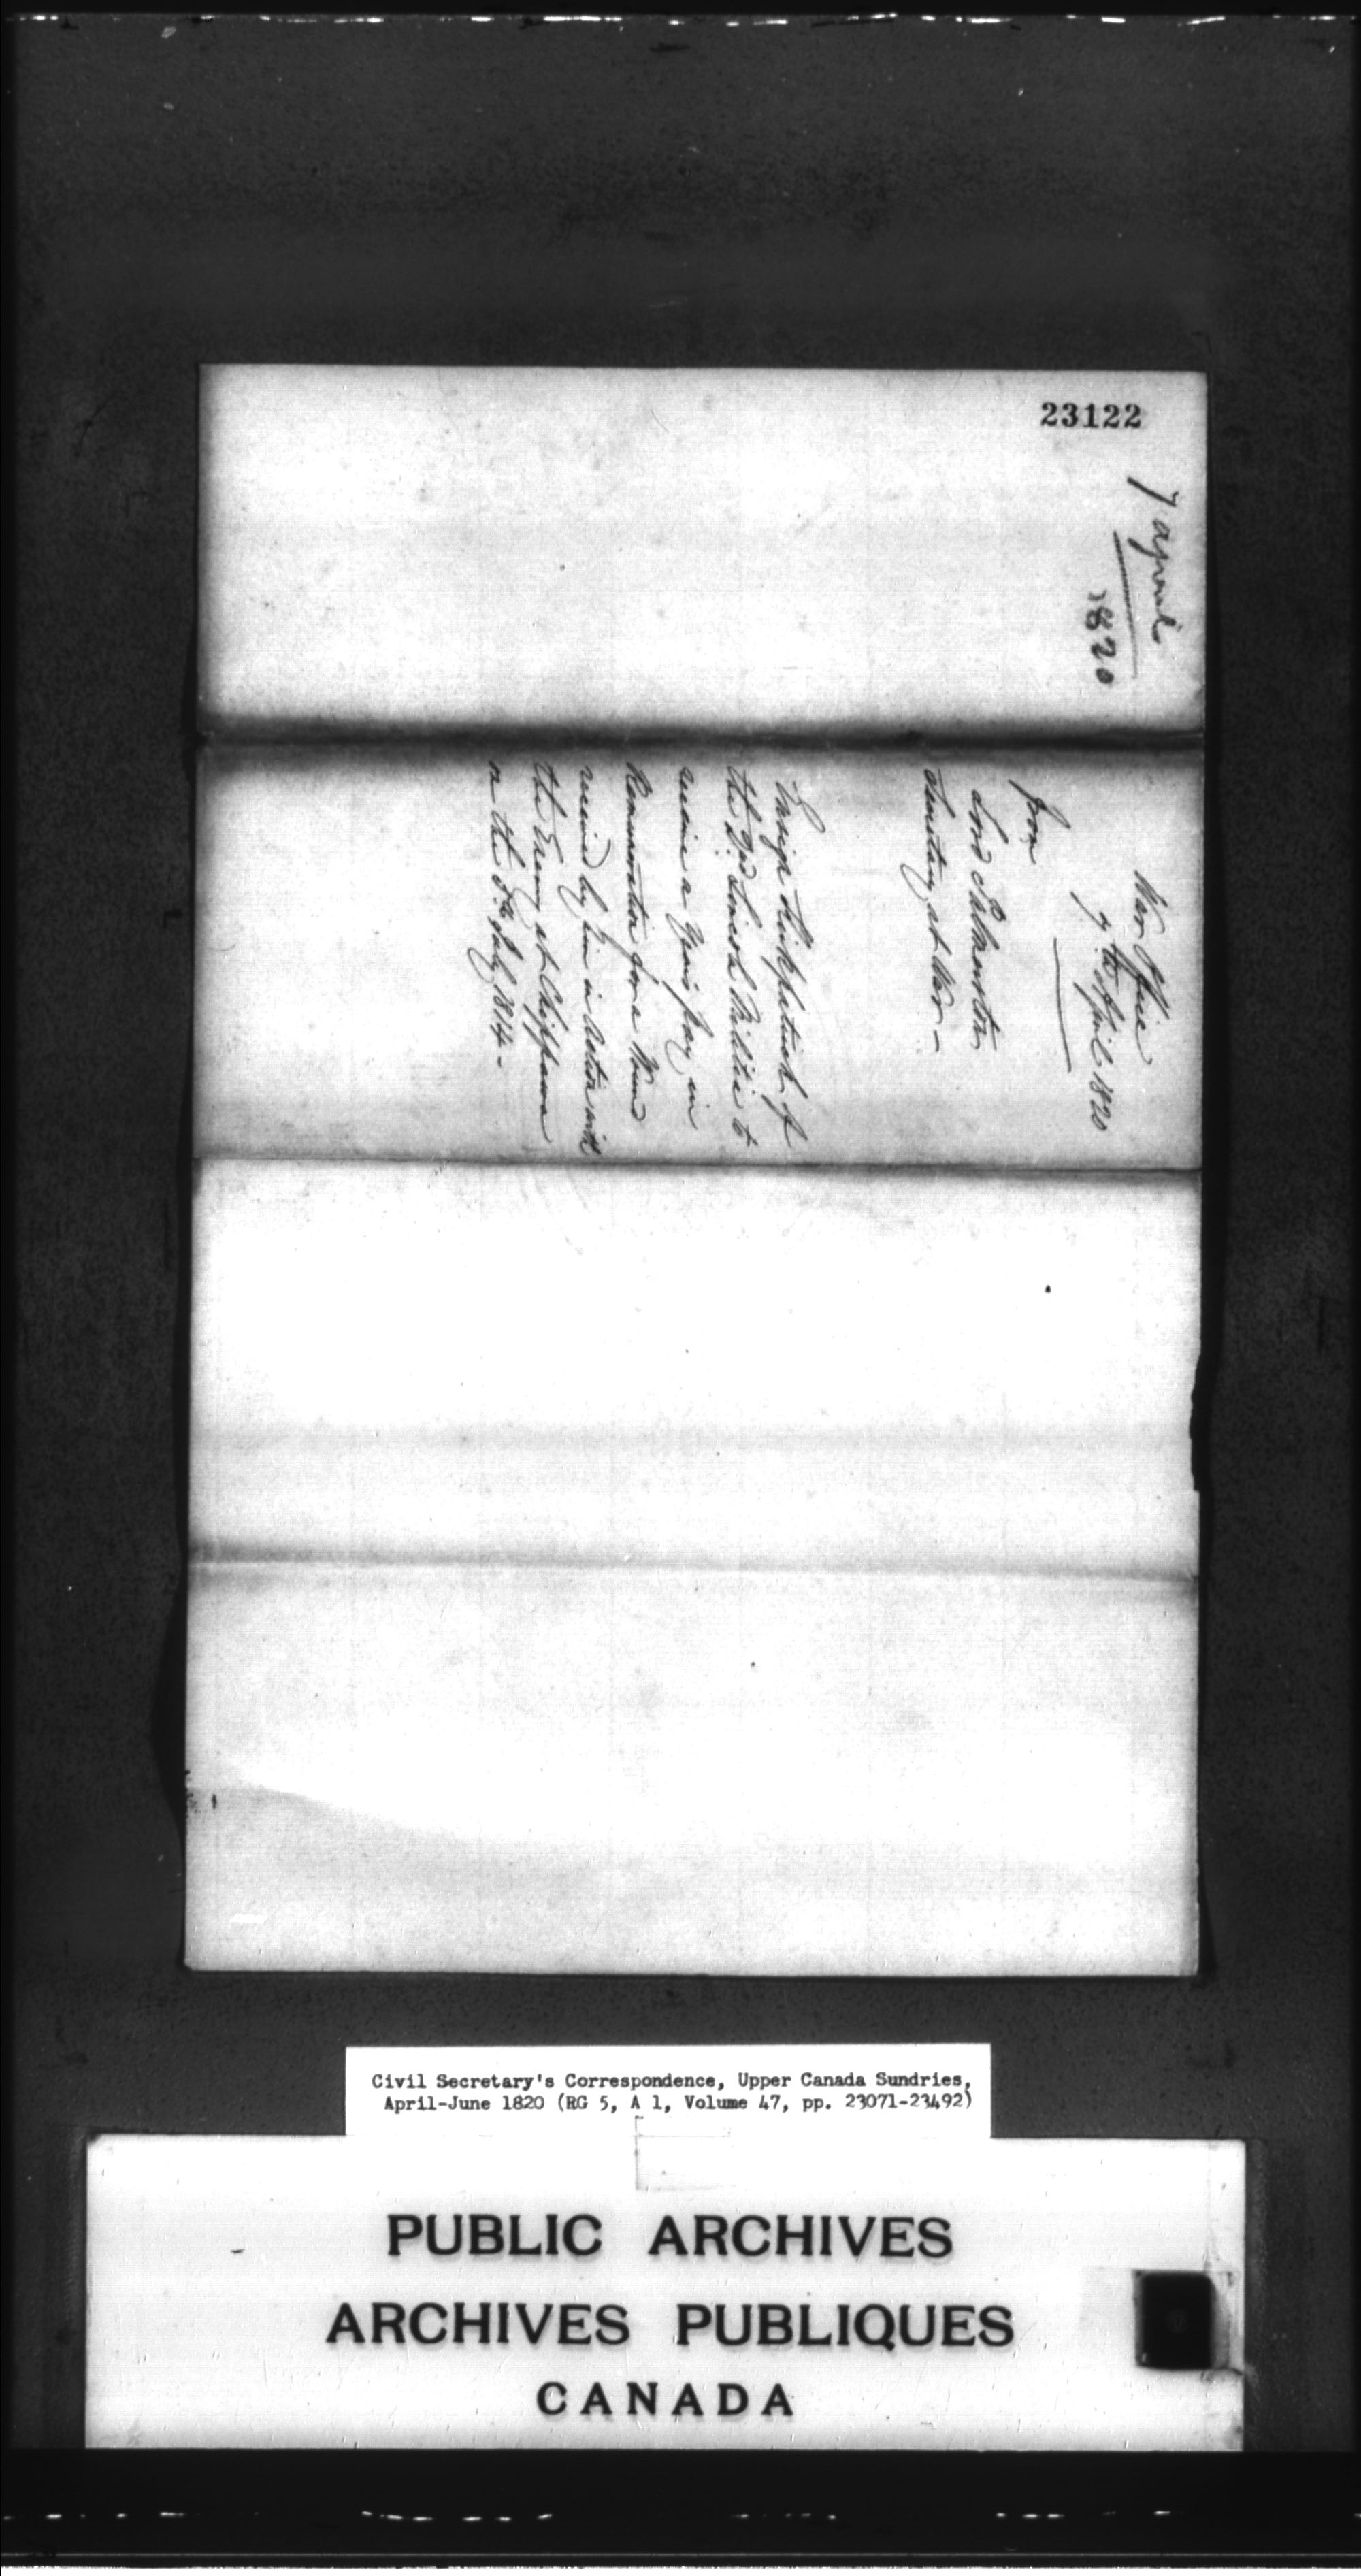 23122
7 april
1820
War Office
7th April 1820
from
Lord Palmerston
Secretary at War -
Ensign Kirkpatrick of
the 2nd Lincoln Militia to
receive a Years pay in
Remuneration for a Wound
received by him in Action with
the Enemy at Chippawa
on the 5th July 1814 -
Civil Secretary's Correspondence, Upper Canada Sundries,
April-June 1820 (RG 5, A 1, Volume 47, pp. 23071-23492)
PUBLIC ARCHIVES
ARCHIVES PUBLIQUES
CANADA